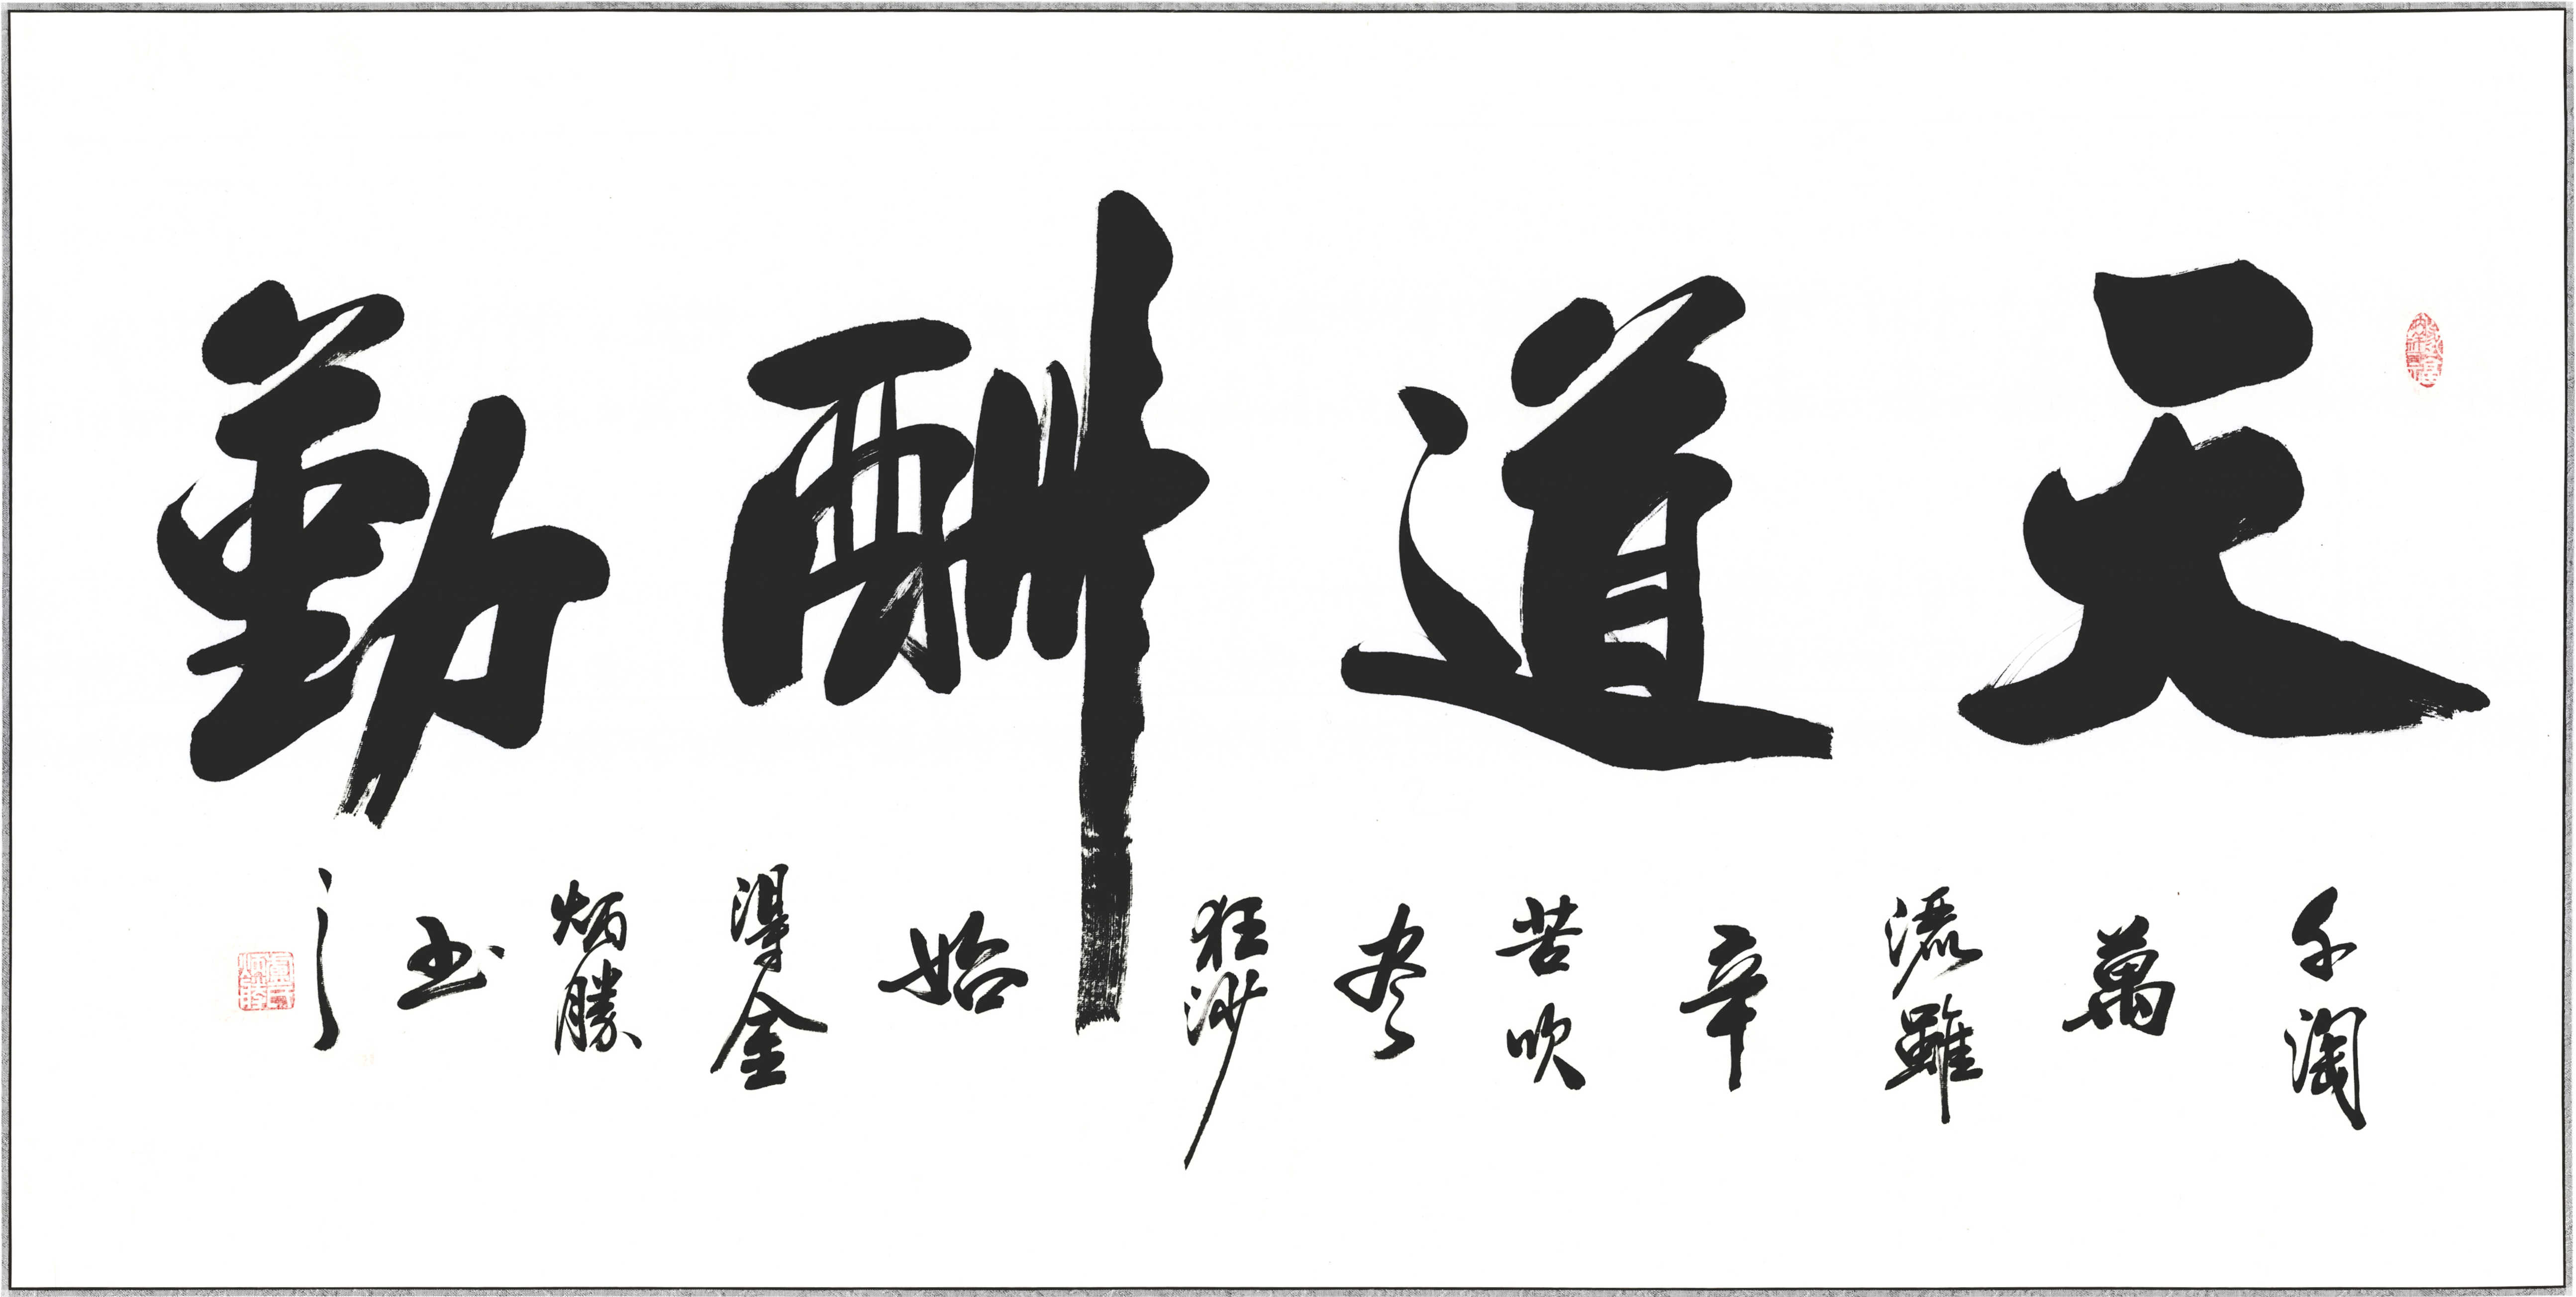 天道酬勤
千淘萬漉雖辛苦吹尽狂沙始得金
炳勝书